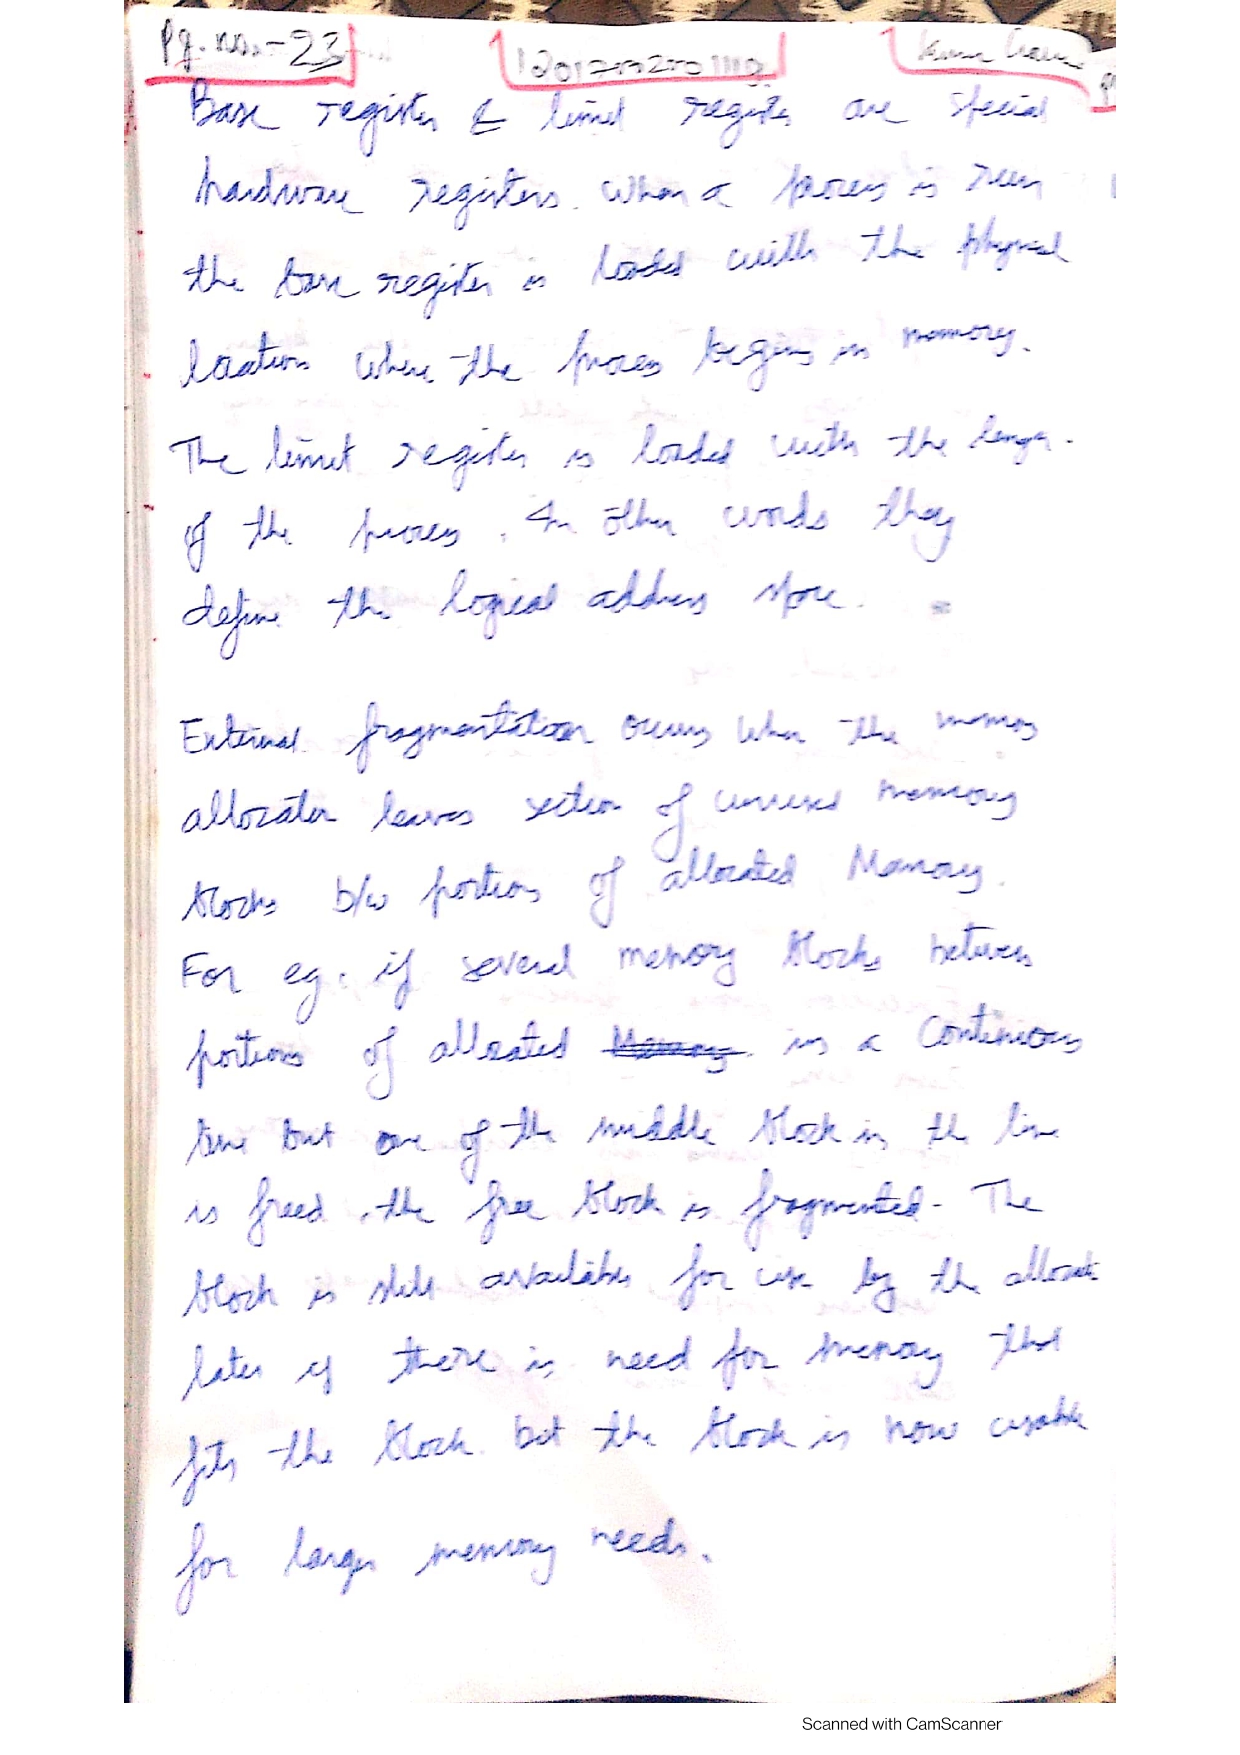 Pg. no. - 23
Base register & limit register are special
hardware registers. When a process is run
the base register is loaded with the physical
location where the process begins in memory.
The limit register is loaded with the
of the process. In other words they
define the logical address space.
External fragmentation occurs when the memory
allocator leaves section of unused memory
blocks b/w portions of allocated Memory.
For eg: if several memory blocks between
portions of allocated in a continuous
line but one of the middle block in the line
is freed, the free block is fragmented. The
block is still available for use by the
later if there is need for memory that
fits the block but the block is now usable
for larger memory needs.
Scanned with CamScanner